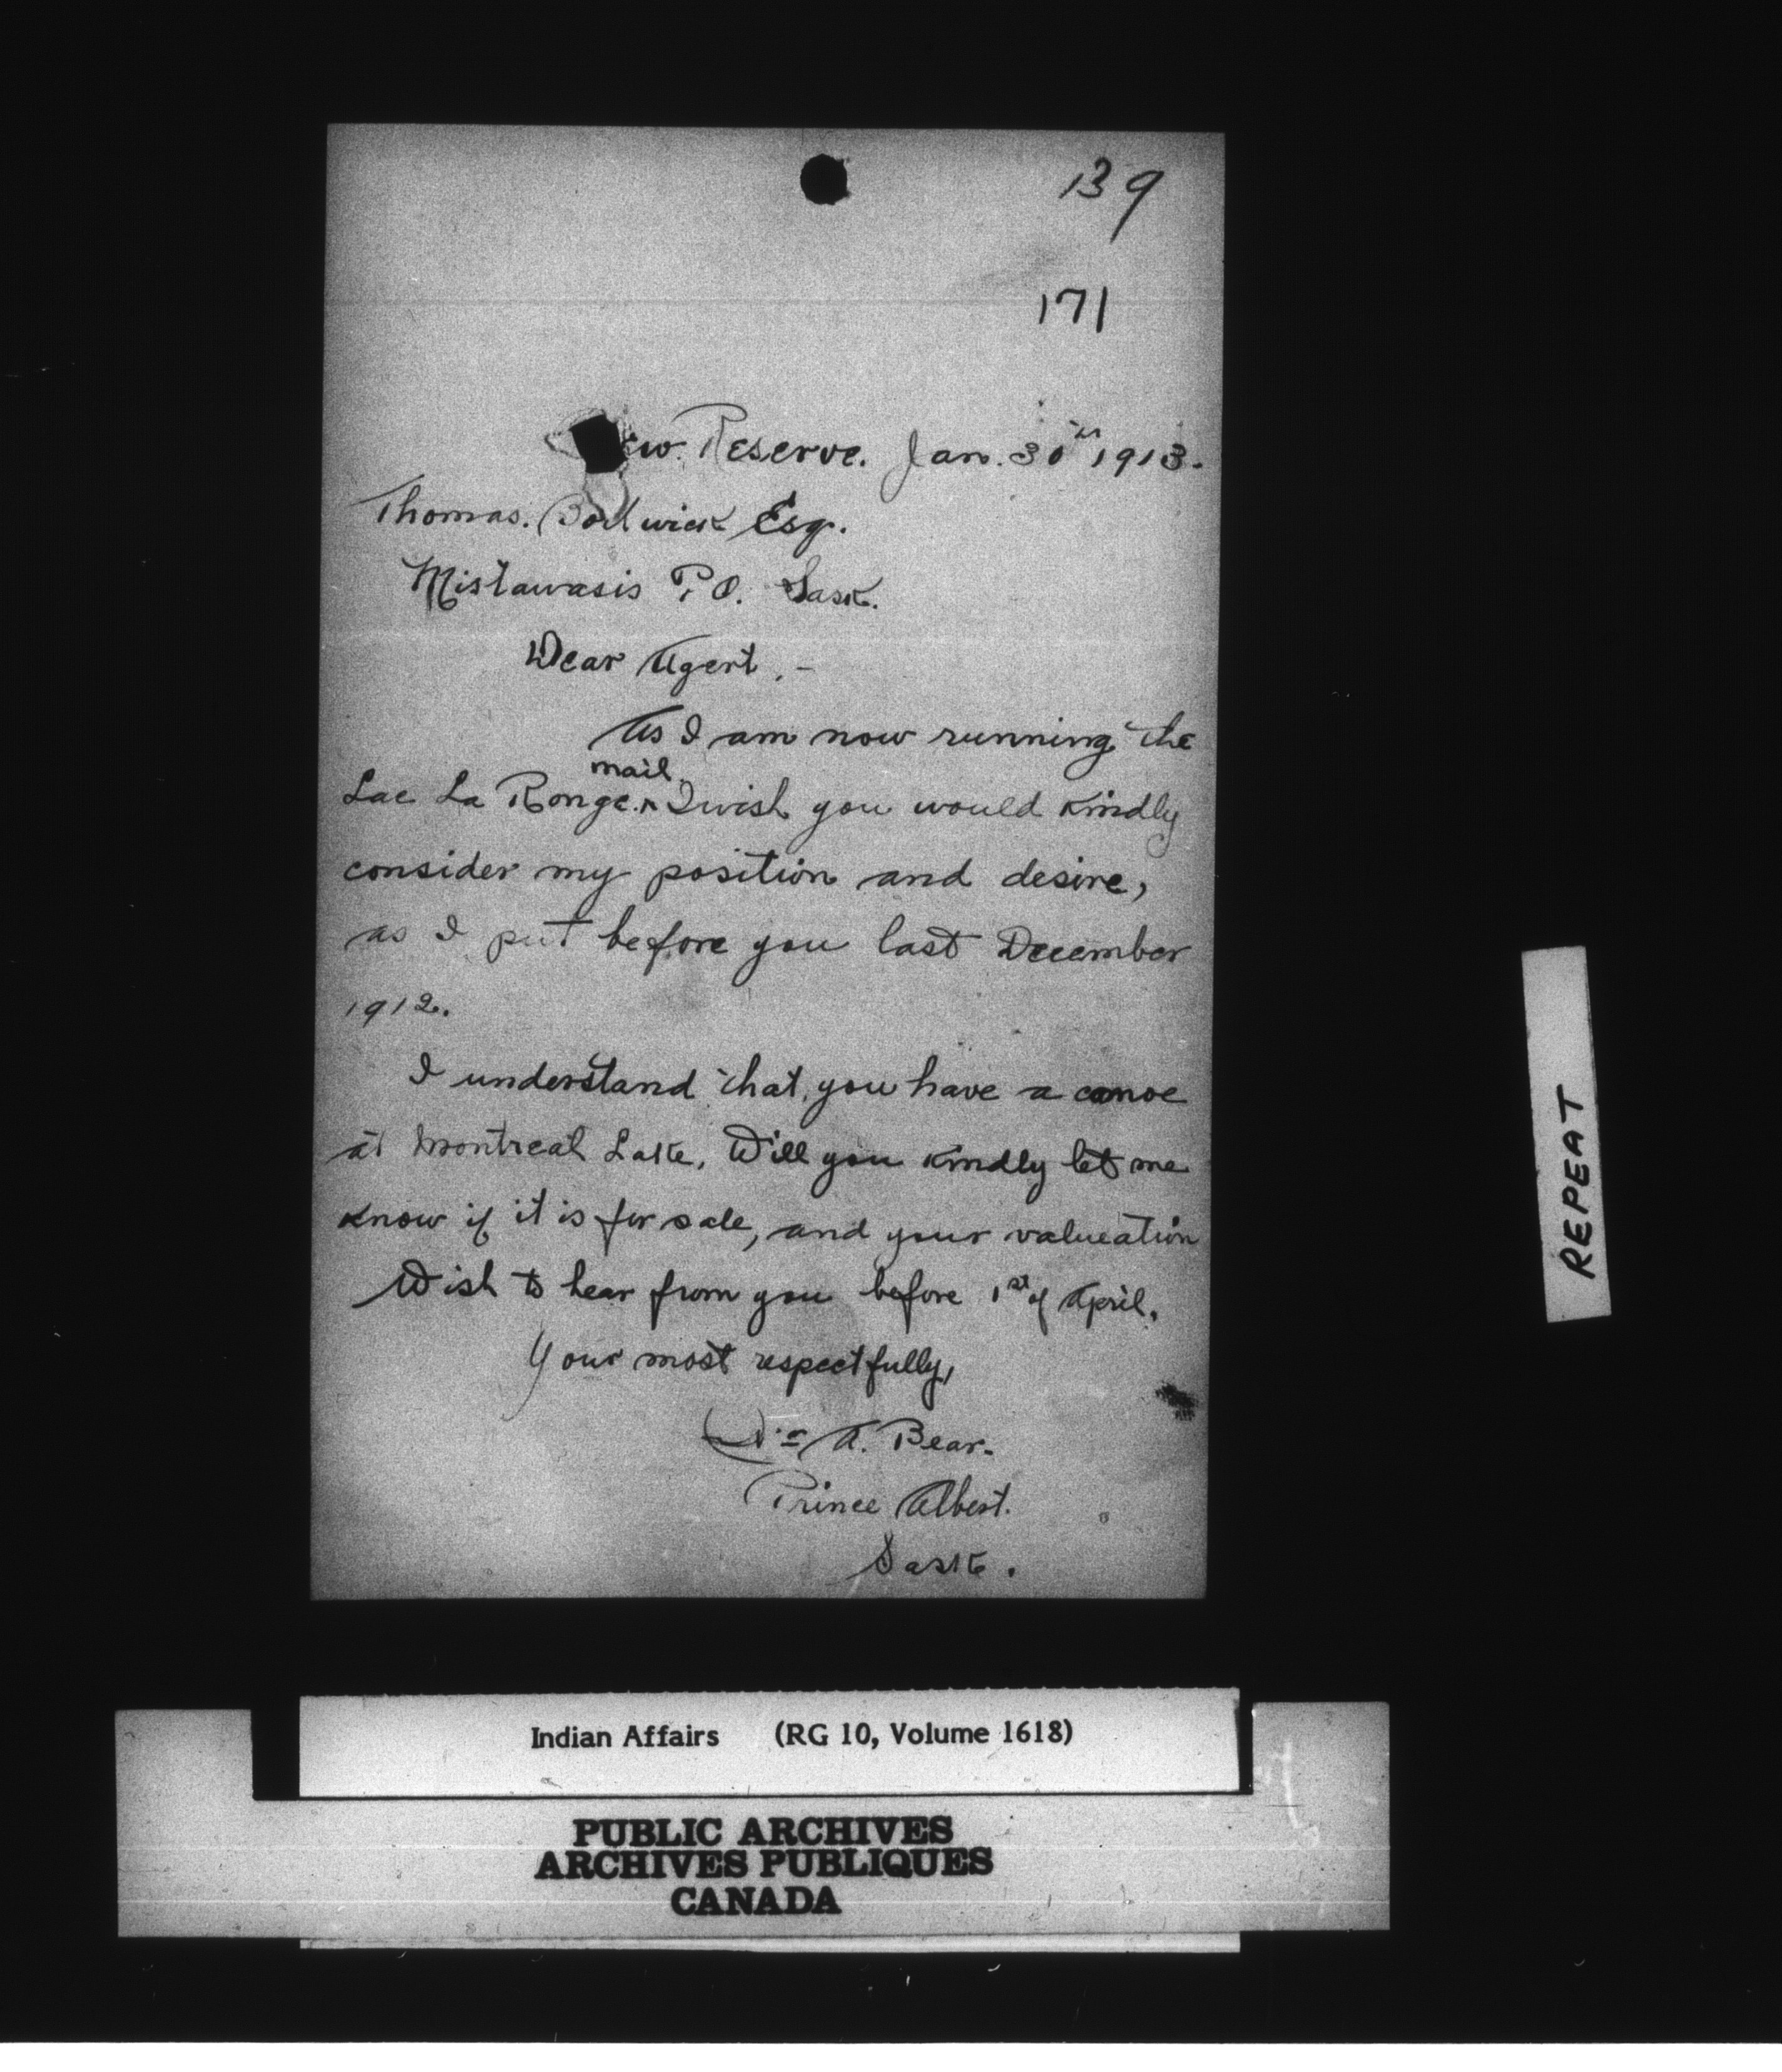 139
171
ew. Reserve. Jan. 30th 1913.
Thomas. Borthwick Esq.
Mistawasis P.O. Sask.
Dear Agent, -
As I am now running the
mail
Lac La Ronge. ^ I wish you would kindly
consider my position and desire,
as I put before you last December
1912.
I understand that, you have a canoe
at Montreal Lake, Will you kindly let me
know if it is for sale, and your valueation
Wish to hear from you before 1st of April.
Your most respectfully,
A. Bear.
Prince Albert.
Sask.
REPEAT
Indian Affairs (RG 10, Volume 1618)
PUBLIC ARCHIVES
ARCHIVES PUBLIQUES
CANADA